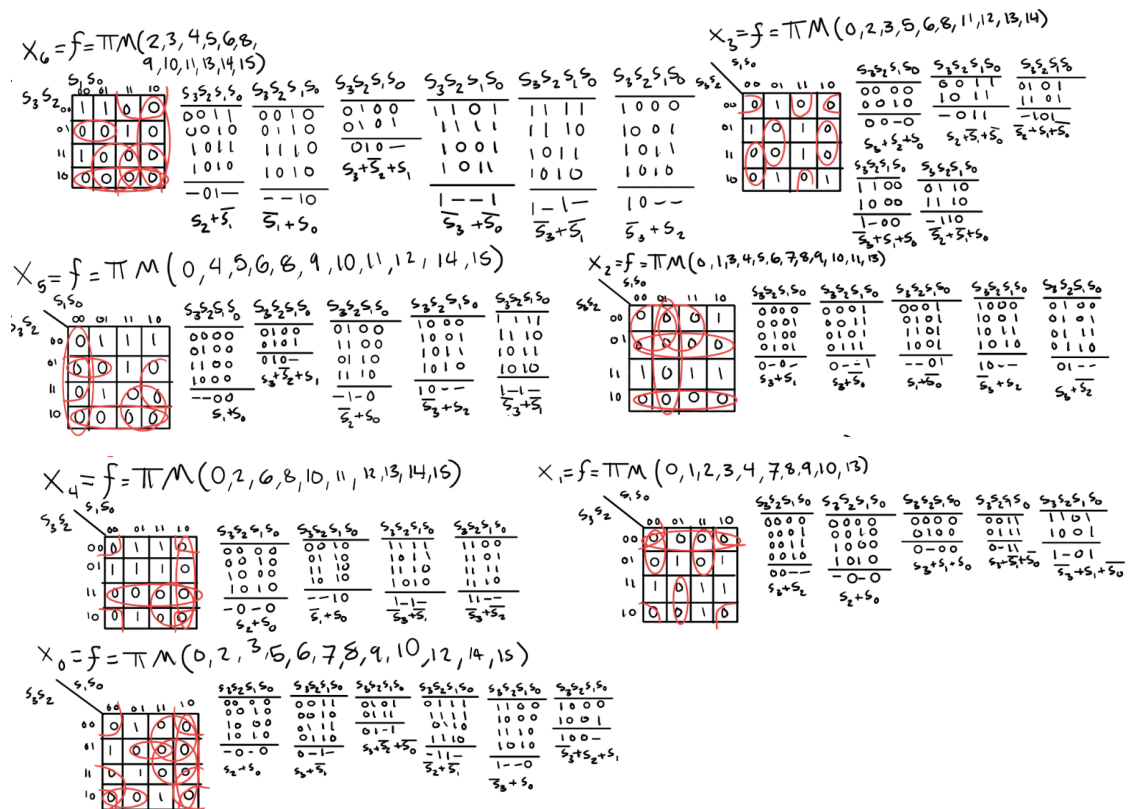 X₆ = f = πM(2,3,4,5,6,8,
9,10,11,13,14,15)
S₁S₀
00 01 11 10
S₃S₂
00 1 1 0 0
01 0 0 1 0
11 1 0 0 0
10 0 0 0 0
S₃S₂S₁S₀
0011
0010
1011
1010
-01-
S₂+S̅₁
S₃S₂S₁S₀
0010
0110
1110
1010
--10
S̅₁+S₀
S₃S₂S₁S₀
0100
0101
010-
S₃+S̅₂+S₁
S₃S₂S₁S₀
1101
1111
1001
1011
1--1
S̅₃+S̅₀
S₃S₂S₁S₀
1111
1110
1011
1010
1-1-
S̅₃+S̅₁
S₃S₂S₁S₀
1000
1001
1011
1010
10--
S̅₃+S₂
X₃ = f = πM(0,2,3,5,6,8,11,12,13,14)
S₁S₀
S₃S₂
00 01 11 10
00 0 1 0 0
01 1 0 1 0
11 0 0 1 0
10 0 1 0 1
S₃S₂S₁S₀
0000
0010
00-0
S₃+S₂+S₀
S₃S₂S₁S₀
0011
1011
-011
S₂+S̅₁+S̅₀
S₃S₂S₁S₀
0101
1101
-101
S̅₂+S₁+S̅₀
S₃S₂S₁S₀
1100
1000
1-00
S̅₃+S₁+S₀
S₃S₂S₁S₀
0110
1110
-110
S̅₂+S̅₁+S₀
X₅ = f = πM(0,4,5,6,8,9,10,11,12,14,15)
S₁S₀
S₃S₂
00 01 11 10
00 0 1 1 1
01 0 0 1 0
11 0 1 0 0
10 0 0 0 0
S₃S₂S₁S
0000
0100
1100
1000
--00
S₁+S₀
S₃S₂S₁S₀
0100
0101
010-
S₃+S̅₂+S₁
S₃S₂S₁S₀
0100
1100
0110
1110
-1-0
S̅₂+S₀
S₃S₂S₁S₀
1000
1001
1011
1010
10--
S̅₃+S₂
S₃S₂S₁S₀
1111
1110
1011
1010
1-1-
S̅₃+S̅₁
X₂ = f = πM(0,1,3,4,5,6,7,8,9,10,11,13)
S₁S₀
S₃S₂
00 01 11 10
00 0 0 0 1
01 0 0 0 0
11 1 0 1 1
10 0 0 0 0
S₃S₂S₁S₀
0000
0001
0100
0101
0-0-
S₃+S₁
S₃S₂S₁S₀
0001
0011
0101
0111
0--1
S₃+S̅₀
S₃S₂S₁S₀
0001
0101
1101
1001
--01
S₁+S̅₀
S₃S₂S₁S₀
1000
1001
1011
1010
10--
S̅₃+S₂
S₃S₂S₁S₀
0100
0101
0111
0110
01--
S₃+S̅₂
X₄ = f = πM(0,2,6,8,10,11,12,13,14,15)
S₁S₀
S₃S₂
00 01 11 10
00 0 1 1 0
01 1 1 1 0
11 0 0 0 0
10 0 1 0 0
S₃S₂S₁S₀
0000
0010
1000
1010
-0-0
S₂+S₀
S₃S₂S₁S₀
0010
0110
1110
1010
--10
S̅₁+S₀
S₃S₂S₁S₀
1111
1110
1011
1010
1-1-
S̅₃+S̅₁
S₃S₂S₁S₀
1100
1101
1111
1110
11--
S̅₃+S̅₂
X₁ = f = πM(0,1,2,3,4,7,8,9,10,13)
S₁S₀
S₃S₂
00 01 11 10
00 0 0 0 0
01 0 1 0 1
11 1 0 1 1
10 0 0 1 1
S₃S₂S₁S₀
0000
0001
0011
0010
00--
S₃+S₂
S₃S₂S₁S₀
0000
0010
1000
1010
-0-0
S₂+S₀
S₃S₂S₁S₀
0000
0100
0-00
S₃+S₁+S₀
S₃S₂S₁S₀
0011
0111
0-11
S₃+S̅₁+S̅₀
S₃S₂S₁S₀
1101
1001
1-01
S̅₃+S₁+S̅₀
X₀ = f = πM(0,2,3,5,6,7,8,9,10,12,14,15)
S₁S₀
S₃S₂
00 01 11 10
00 0 1 0 0
01 1 0 0 0
11 0 1 0 0
10 0 0 1 0
S₃S₂S₁S₀
0000
0010
1000
1010
-0-0
S₂+S₀
S₃S₂S₁S₀
0011
0010
0111
0110
0-1-
S₃+S̅₁
S₃S₂S₁S₀
0101
0111
01-1
S₃+S̅₂+S̅₀
S₃S₂S₁S₀
0111
1111
0110
1110
-11-
S̅₂+S̅₁
S₃S₂S₁S₀
1100
1000
1110
1010
1--0
S̅₃+S₀
S₃S₂S₁S₀
1000
1001
100-
S̅₃+S₂+S₁